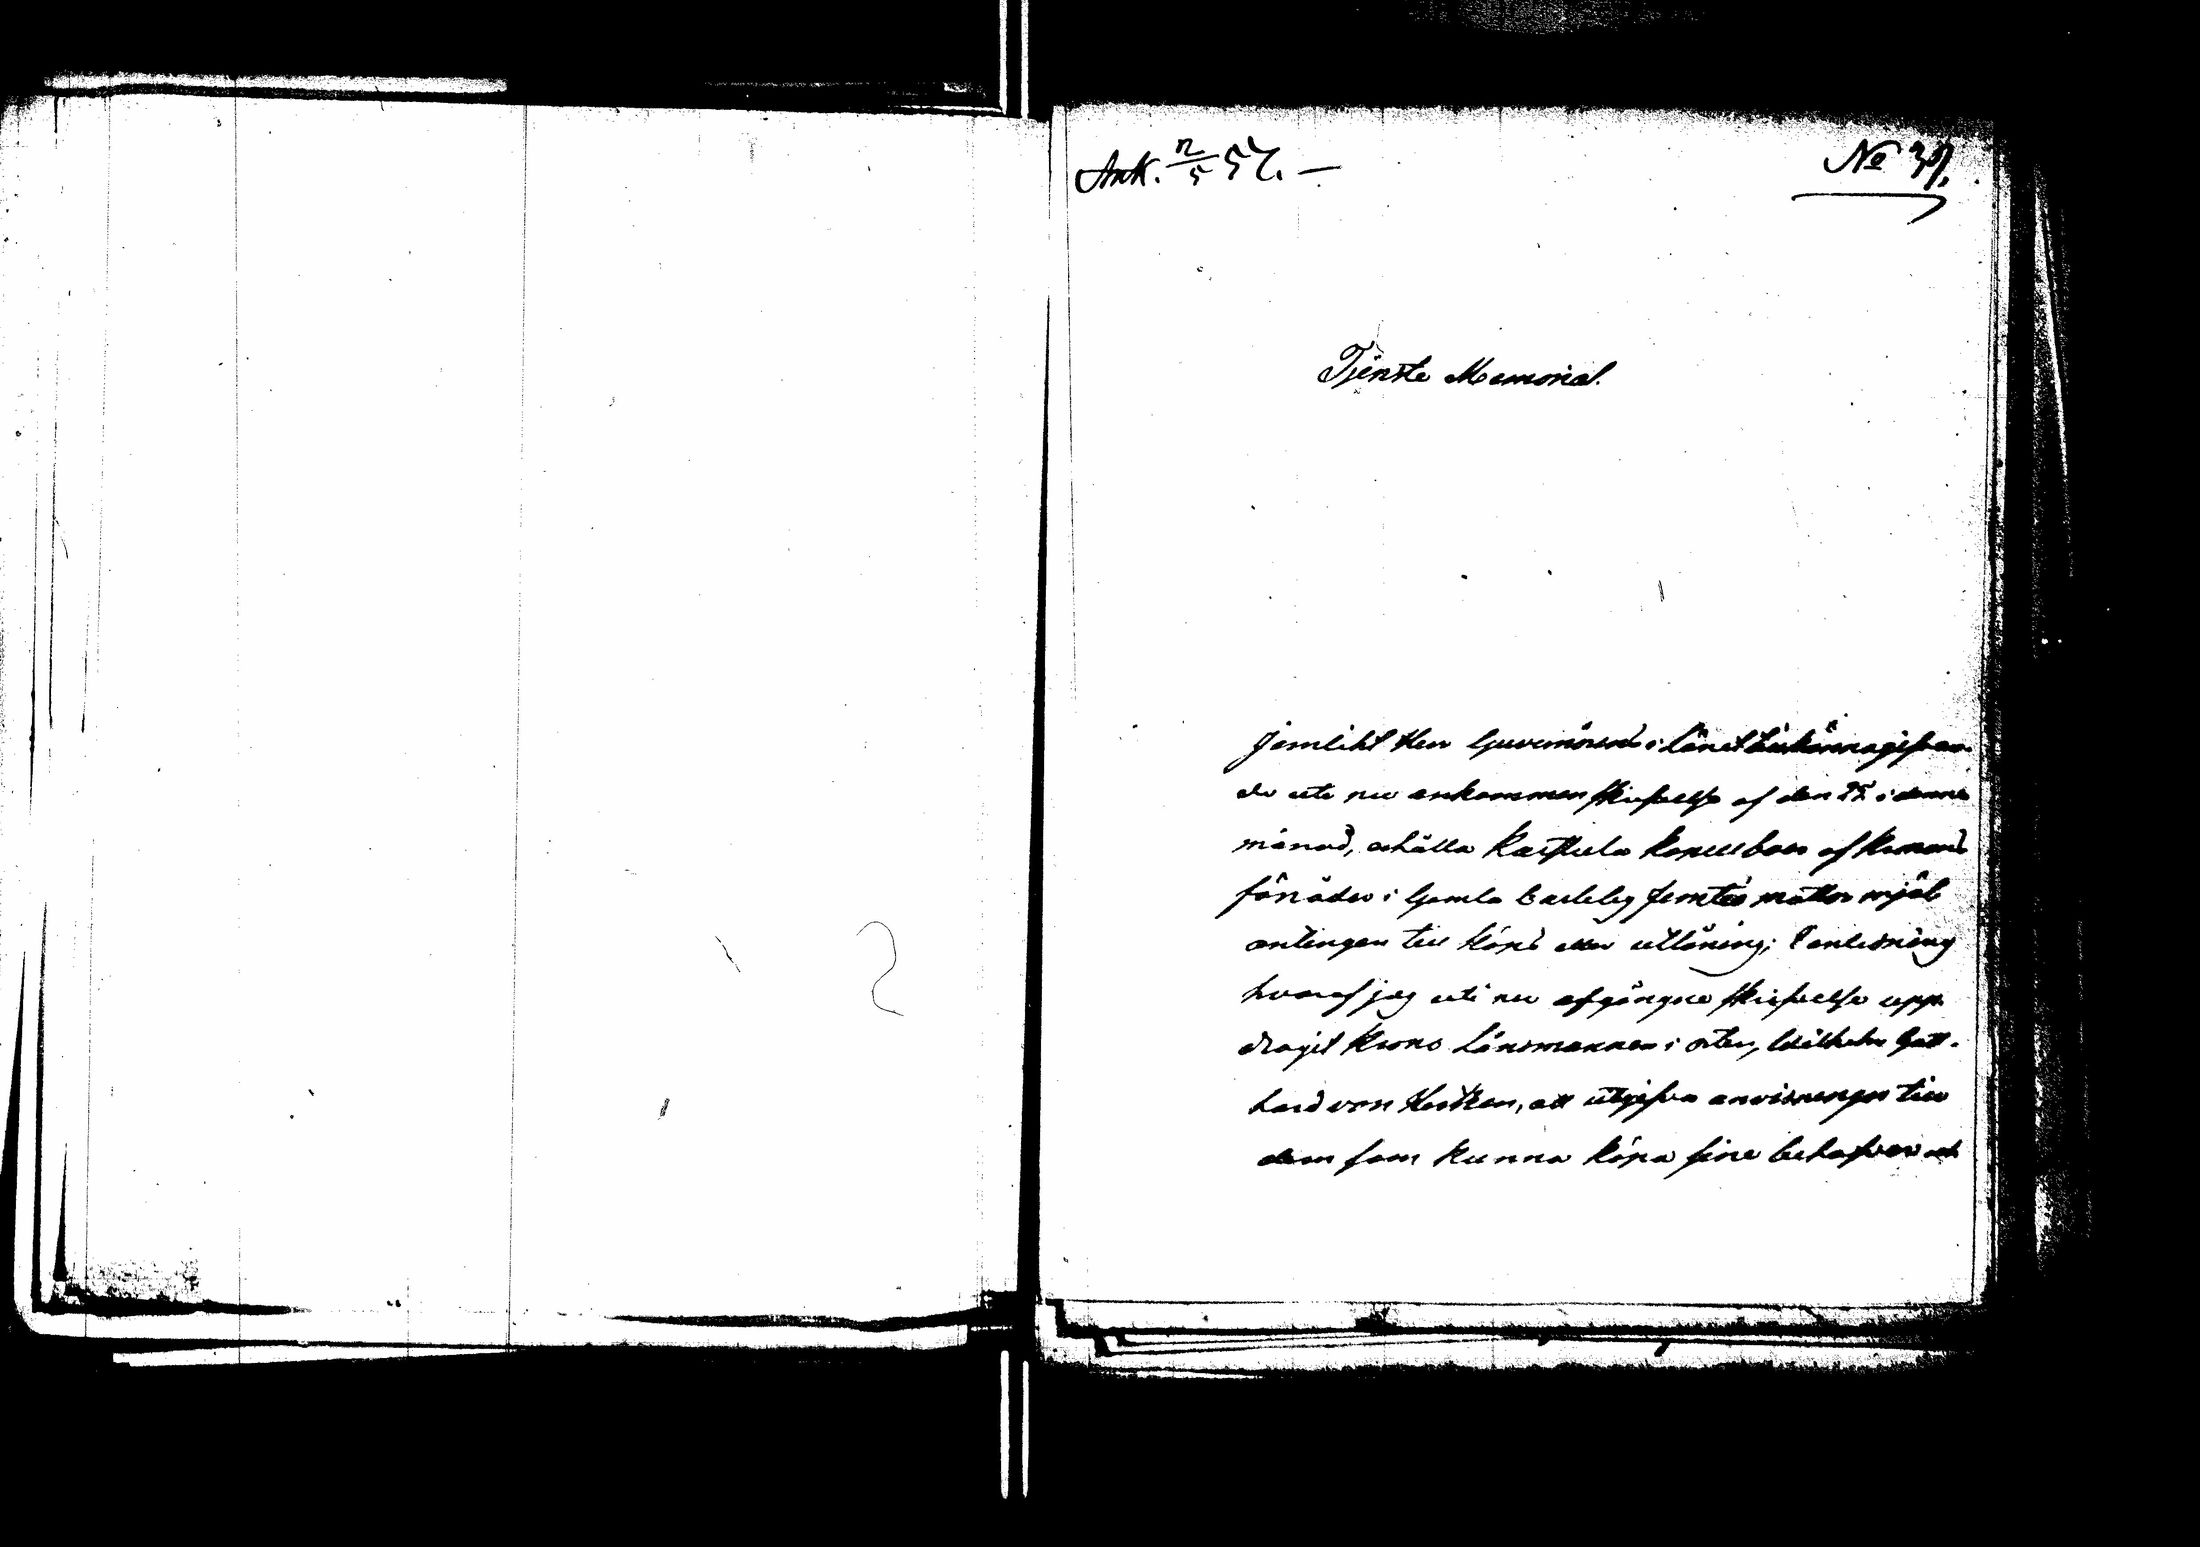 Ank. 12/5 57. —
No 37.
Tjenste Memorial.
Jemlikt Herr Guvernörens i Länet tillkännagifvan-
de uti nu ankommen skrifvelse af den i denna
månad, erhålla Karstula Kapellboer af Kronans
förråder i Gamla Carleby femtio mattor mjöl
antingen till köps eller utlåning; I anledning
hvaraf jag uti nu afgången skrifvelse upp-
dragit Krono Länsmannen i orten, Wilhelm Gott-
hard von Hertzen, att utgifva anvisningar till
dem som kunna köpa sine behofver och